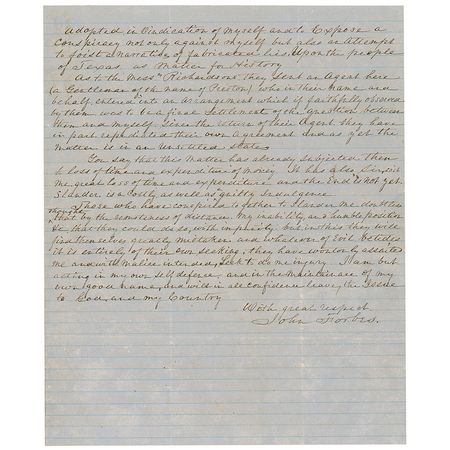 adopted in Vindication of myself and to Expose a
Conspiracy not only against myself but also an Attempt
to foist a Narrative of fabricated lies Upon the people
of Texas as Matter for History
As to the Messrs Richardsons they Sent an Agent here
(a Gentleman of the name of Preston) who in their name and
behalf entered into an arrangement which if faithfully observed
by them was to be a final Settlement of the question between
them and myself. Since the return of their Agent they have
in part repudiated their own agreement and as yet the
Matter is in an Unsettled state.
You say that this Matter has already subjected them
to loss of time and expenditure of money. It has also Subjected
me great loss of time and expenditure and the End is not yet.
Slander is a Costly as well as guilty indulgence
Those who have conspired together to Slander me doubtless
thought
that by the remoteness of distance, My inability, and humble position
&c that they could do so, with impunity but in this they will
find themselves greatly mistaken and whatever of Evil betides
it is entirely of their own seeking, they have wantonly assailed
me and with malice intended, seek to do me injury. I am but
acting in my own self defence and in the maintenance of my
own good name, and will in all confidence leave the Issue
to God and my Country
With great respect
John Forbes.